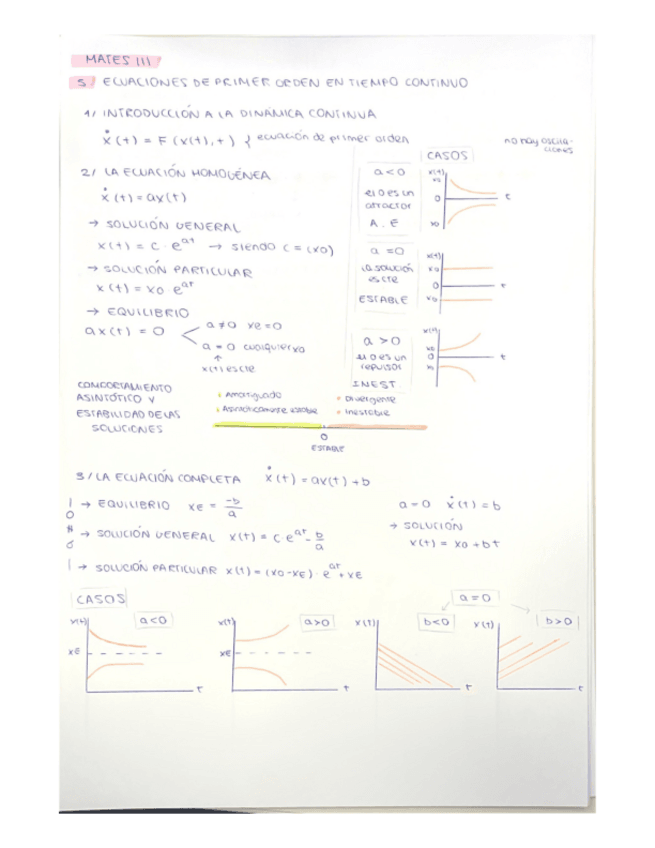 MATES III
5/ ECUACIONES DE PRIMER ORDEN EN TIEMPO CONTINUO
1/ INTRODUCCIÓN A LA DINÁMICA CONTINUA
ẋ(t) = F(x(t), t) } ecuación de primer orden
no hay oscila-
ciones
CASOS
2/ LA ECUACIÓN HOMOGÉNEA
ẋ(t) = ax(t)
→ SOLUCIÓN GENERAL
x(t) = c · e^at → siendo c = (x0)
→ SOLUCIÓN PARTICULAR
x(t) = x0 e^at
→ EQUILIBRIO
ax(t) = 0
a ≠ 0 xe = 0
a = 0 cualquier x0
↑
x(t) es cte
a < 0
el 0 es un
atractor
A. E
x(t)
x0
0
x0
t
a = 0
la solución
es cte
ESTABLE
x(t)
x0
0
x0
t
a > 0
el 0 es un
repulsor
INEST.
x(t)
0
t
COMPORTAMIENTO
ASINTÓTICO Y
ESTABILIDAD DE LAS
SOLUCIONES
Amortiguado
Asintóticamente estable
Divergente
Inestable
0
ESTABLE
3/ LA ECUACIÓN COMPLETA ẋ(t) = ax(t) + b
→ EQUILIBRIO xe = -b/a
→ SOLUCIÓN GENERAL x(t) = c·e^at - b/a
→ SOLUCIÓN PARTICULAR x(t) = (x0 - xE) · e^at + xE
a = 0 ẋ(t) = b
→ SOLUCIÓN
x(t) = x0 + bt
CASOS
a = 0
x(t) a < 0
xE
t
x(t) a > 0
xE
t
x(t) b < 0
t
x(t) b > 0
t